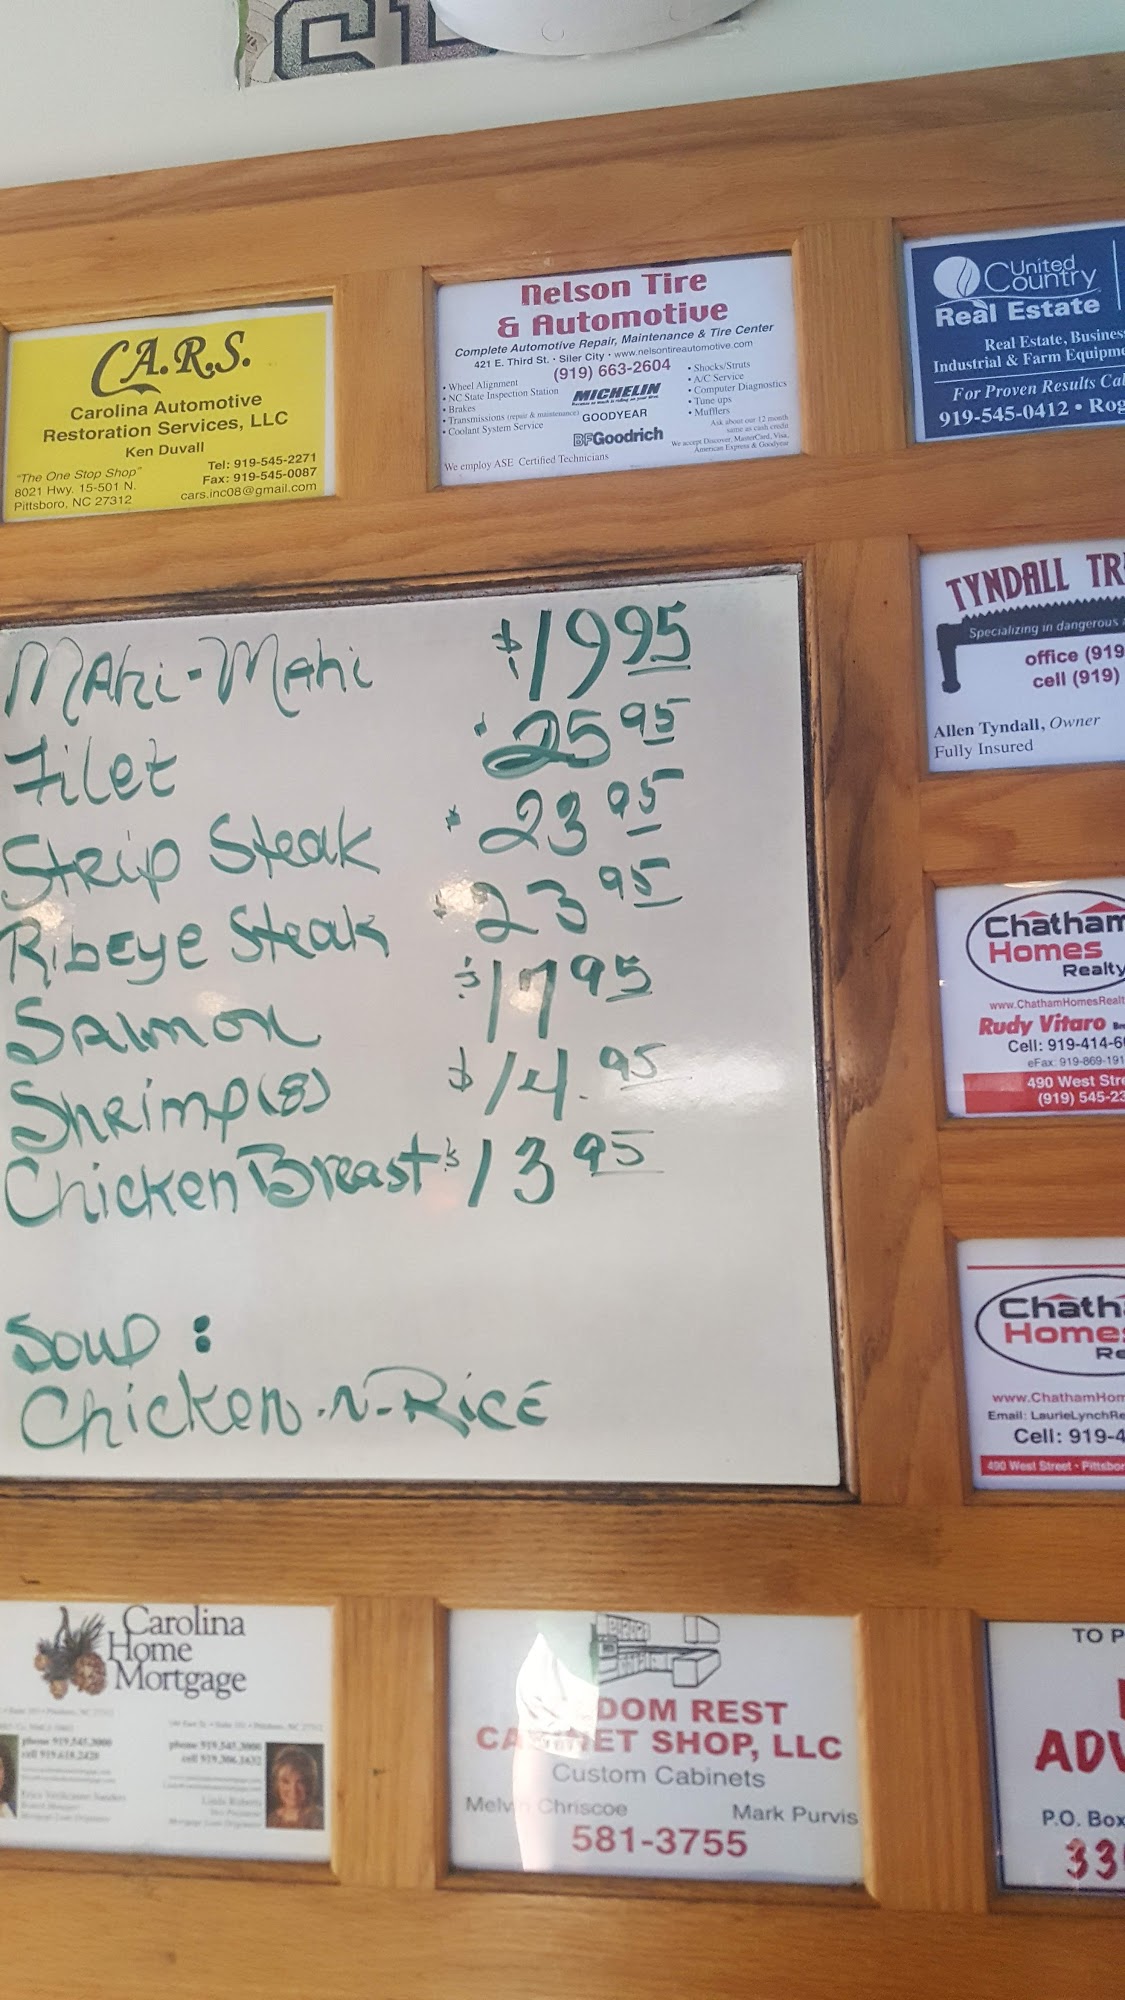 C.A.R.S.
Carolina Automotive
Restoration Services, LLC
Ken Duvall
"The One Stop Shop"
8021 Hwy. 15-501 N.
Pittsboro, NC 27312
Tel: 919-545-2271
Fax: 919-545-0087
cars.inc08@gmail.com
Nelson Tire
& Automotive
Complete Automotive Repair, Maintenance & Tire Center
421 E. Third St. • Siler City • www.nelsontireautomotive.com
(919) 663-2604
• Wheel Alignment
• NC State Inspection Station
• Brakes
• Transmissions (repair & maintenance)
• Coolant System Service
MICHELIN
GOODYEAR
BFGoodrich
• Shocks/Struts
• A/C Service
• Computer Diagnostics
• Tune ups
• Mufflers
Ask about our 12 month
same as cash credit
We accept Discover, MasterCard, Visa,
American Express & Goodyear
We employ ASE Certified Technicians
United
Country
Real Estate
Real Estate, Business
Industrial & Farm Equipme
For Proven Results Cal
919-545-0412 • Rog
TYNDALL TR
Specializing in dangerous
office (919
cell (919)
Allen Tyndall, Owner
Fully Insured
Mahi-Mahi $19 95
Filet $25 95
Strip Steak $23 95
Ribeye Steak $23 95
Salmon $17 95
Shrimp (8) $14. 95
Chicken Breast $13 95
Soup:
Chicken-N-Rice
Chatham
Homes
Realty
www.ChathamHomesRealt
Rudy Vitaro
Cell: 919-414-6
eFax: 919-869-191
490 West Stre
(919) 545-23
Chath
Homes
Re
www.ChathamHom
Email: LaurieLynchRe
Cell: 919-4
490 West Street • Pittsbor
Carolina
Home
Mortgage
phone 919.545.3000
phone 919.545.3000
Linda Roberts
DOM REST
CA NET SHOP, LLC
Custom Cabinets
Melvin Chriscoe Mark Purvis
581-3755
TO P
ADV
P.O. Box
33